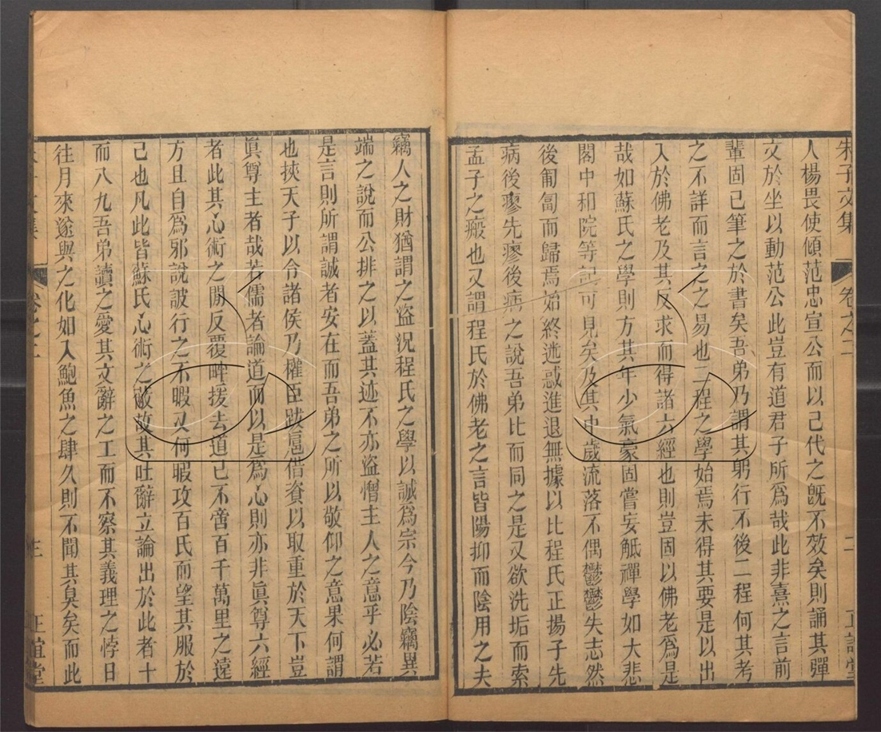 朱子文集 卷之二 二 正誼堂
人楊畏使傾范忠宣公而以己代之旣不效矣則誦其彈
文於坐以動范公此豈有道君子所爲哉此非熹之言前
輩固已筆之於書矣吾弟乃謂其躬行不後二程何其考
之不詳而言之之易也二程之學始焉未得其要是以出
入於佛老及其反求而得諸六經也則豈固以佛老爲是
哉如蘇氏之學則方其年少氣豪固嘗妄觝禪學如大悲
閣中和院等記可見矣及其中歲流落不偶鬱鬱失志然
後匍匐而歸焉始終迷惑進退無據以比程氏正揚子先
病後瘳先瘳後病之說吾弟比而同之是又欲洗垢而索
孟子之瘢也又謂程氏於佛老之言皆陽抑而陰用之夫
竊人之財猶謂之盜況程氏之學以誠爲宗今乃陰竊異
端之說而公排之以蓋其迹不亦盜憎主人之意乎必若
是言則所謂誠者安在而吾弟之所以敬仰之意果何謂
也挾天子以令諸侯乃權臣跋扈借資以取重於天下豈
眞尊主者哉若儒者論道而以是爲心則亦非眞尊六經
者此其心術之間反覆畔援去道已不啻百千萬里之遠
方且自爲邪說詖行之不暇又何暇攻百氏而望其服於
己也凡此皆蘇氏心術之蔽故其吐辭立論出於此者十
而八九吾弟讀之愛其文辭之工而不察其義理之悖日
往月來遂與之化如入鮑魚之肆久則不聞其臭矣而此
文集 卷之二 三 正誼堂